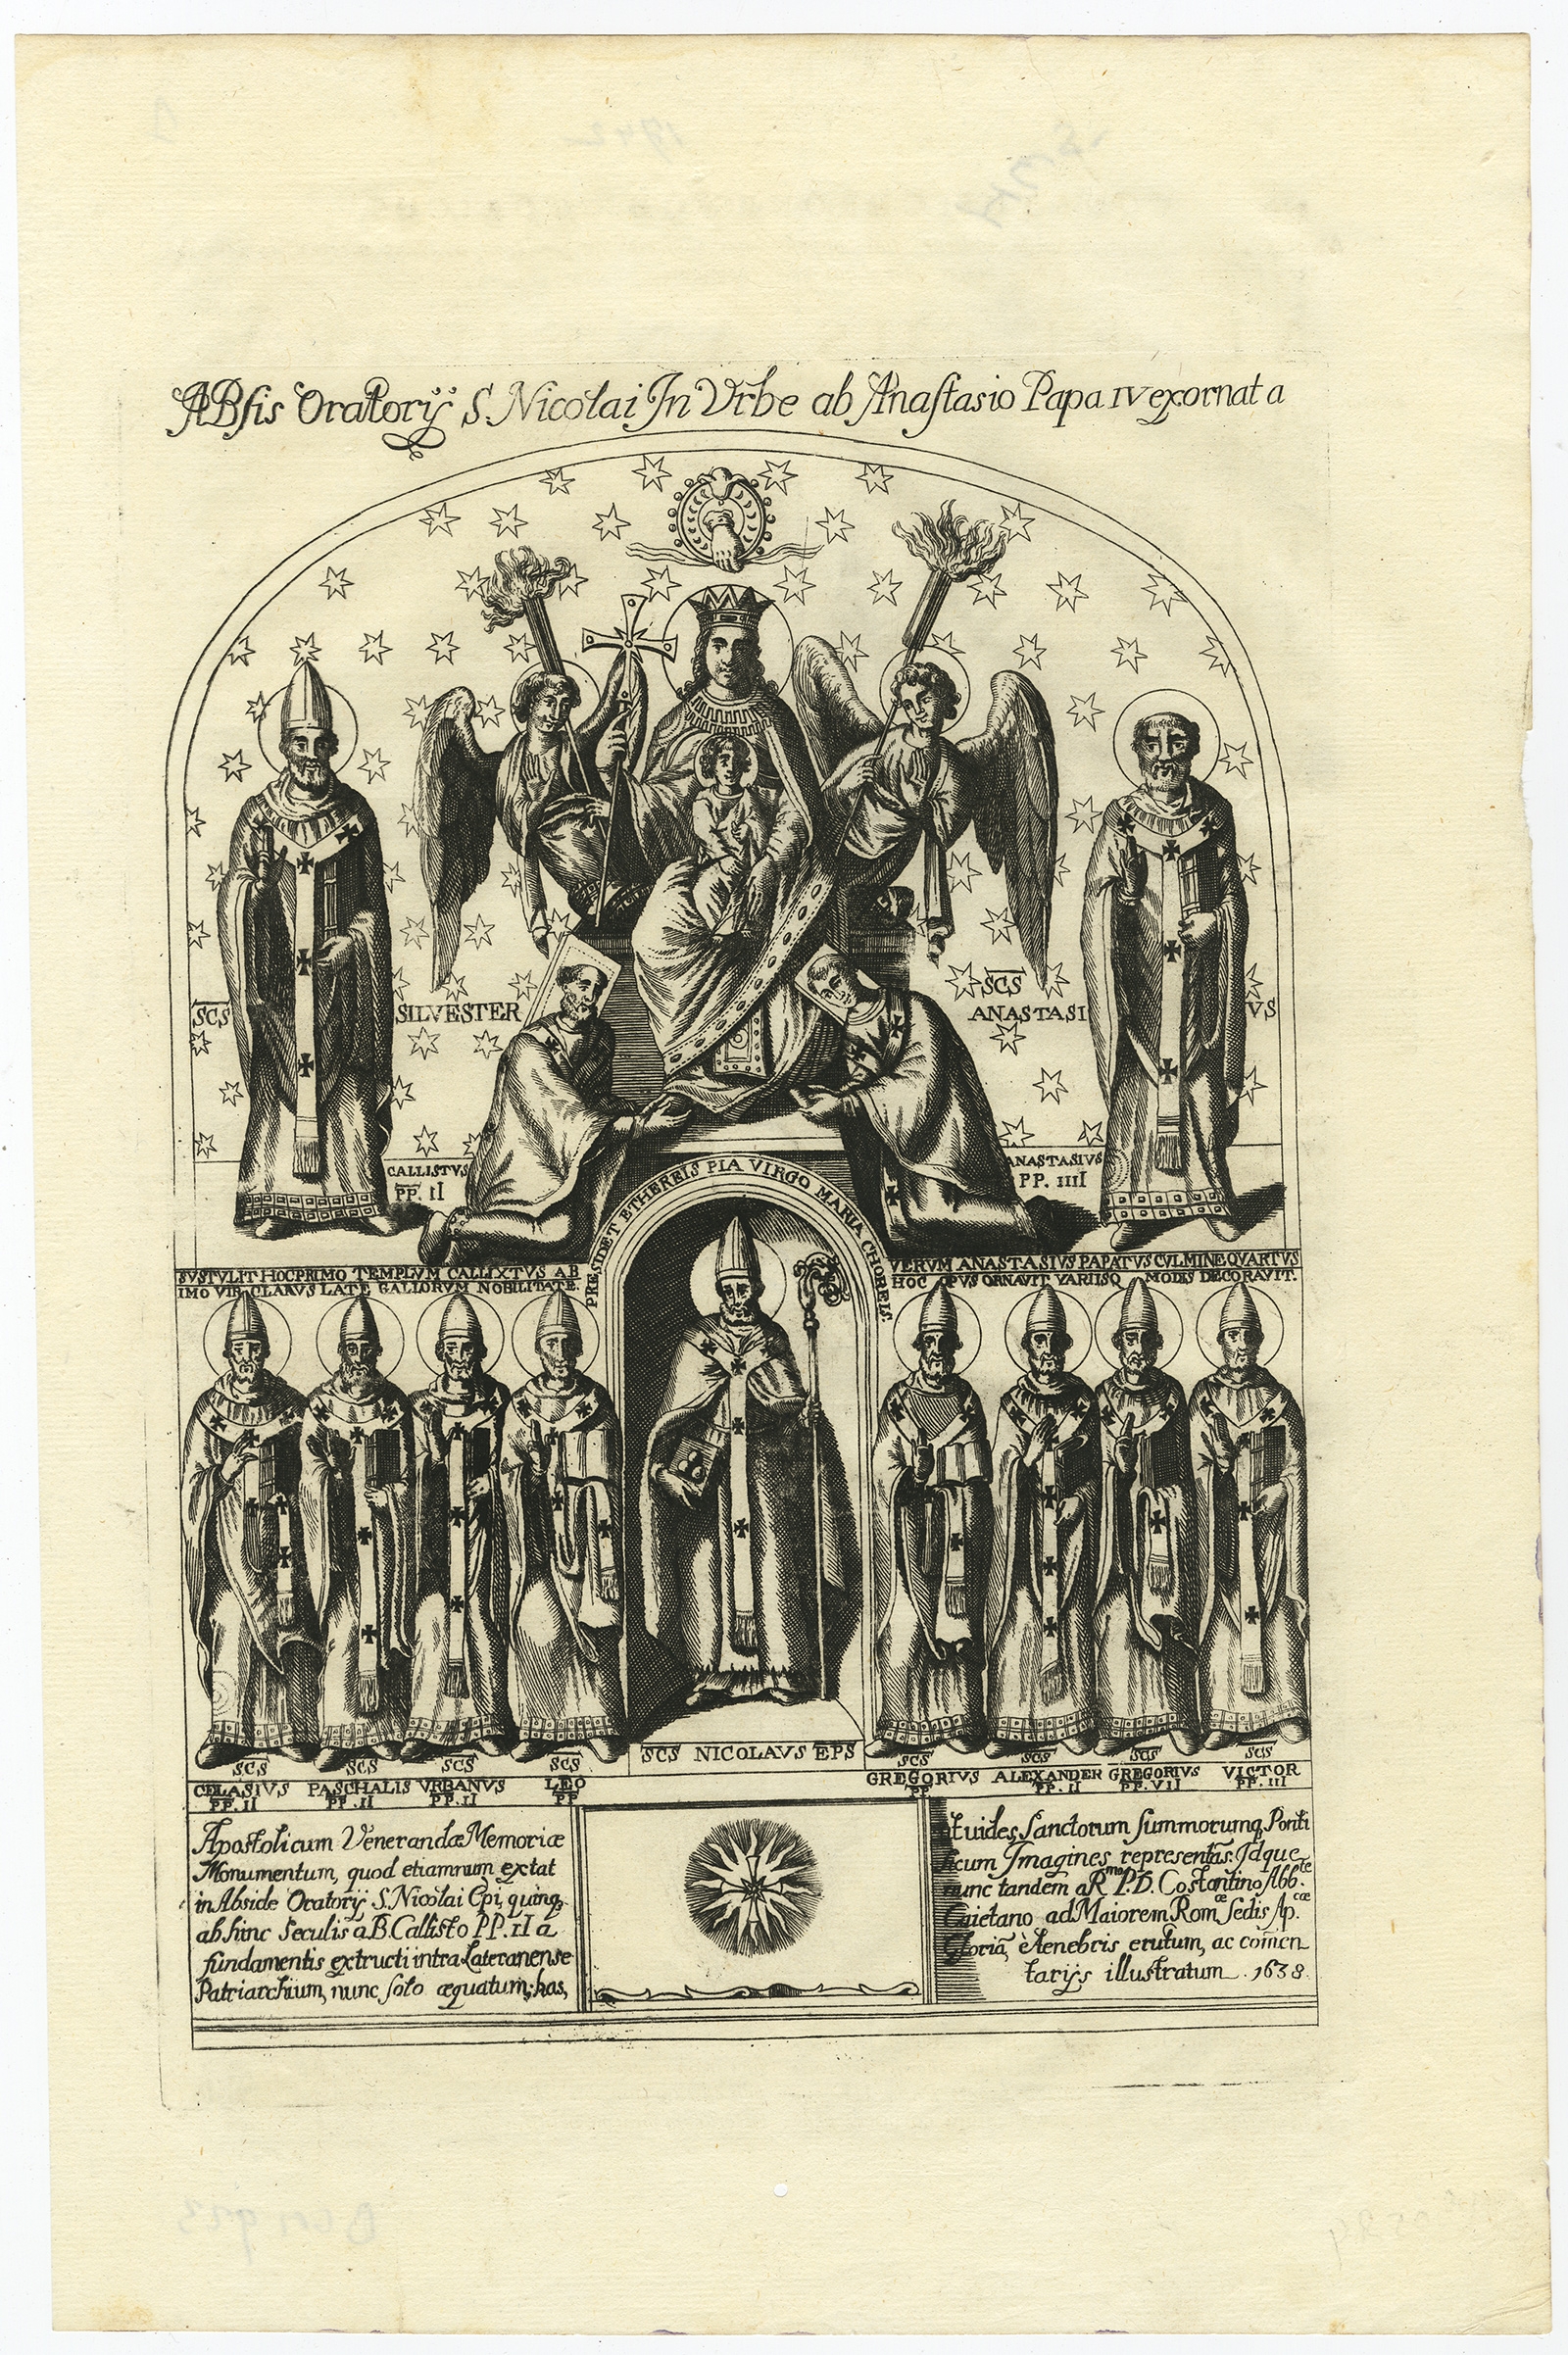 ABsis Oratorÿ S. Nicolai In Vrbe ab Anastasio Papa IV exornata
SCS SILVESTER
SCS
ANASTASI VS
CALLISTVS
PP. II
ANASTASIVS
PP. IIII
PRESIDET ETHEREIS PIA VIRGO MARIA CHOREIS.
SVSTVLIT HOC PRIMO TEMPLVM CALLIXTVS AB
IMO VIR CLARVS LATE GALLORVM NOBILITATE.
VERVM ANASTASIVS PAPATVS CVLMINE QVARTVS
HOC OPVS ORNAVIT VARIISQ MODIS DECORAVIT.
SCS
GELASIVS
PP. II
SCS
PASCHALIS
PP. II
SCS
VRBANVS
PP. II
SCS
LEO
PP
SCS NICOLAVS EPS
SCS
GREGORIVS
PP
SCS
ALEXANDER
PP. II
SCS
GREGORIVS
PP. VII
SCS
VICTOR
PP. III
Apostolicum Venerandæ Memoriæ
Monumentum, quod etiamnum extat
in Abside Oratorÿ S. Nicolai Epi, quinq
ab hinc Seculis a B. Callisto PP. II a
fundamentis extructi intra Lateranense
Patriarchium, nunc solo æquatum; has,
et uides Sanctorum Summorumq Ponti
ficum Imagines representās. Idque
nunc tandem a Rmo P. D. Costantino Abbte
Caietano ad Maiorem Romæ Sedis Apcæ
Gloriā, è tenebris erutum, ac comēn
tarÿs illustratum. 1638.